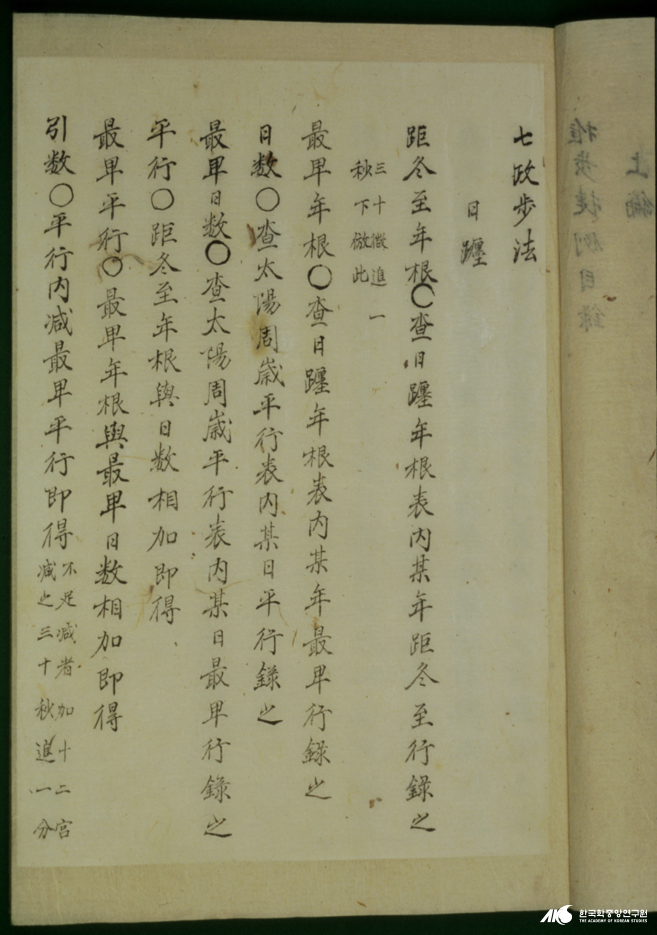 七政步法
日躔
距冬至年根○查日躔年根表内某年距冬至行錄之
三十微進一
秒下倣此
最卑年根○查日躔年根表内某年最卑行錄之
日數○查太陽周歲平行表内某日平行錄之
最卑日數○查太陽周歲平行表内某日最卑行錄之
平行○距冬至年根與日數相加即得
最卑平行○最卑年根與最卑日數相加即得
引数○平行内减最卑平行即得
不足减者加十二宮
减之三十秒進一分
AKS 한국학중앙연구원
THE ACADEMY OF KOREAN STUDIES